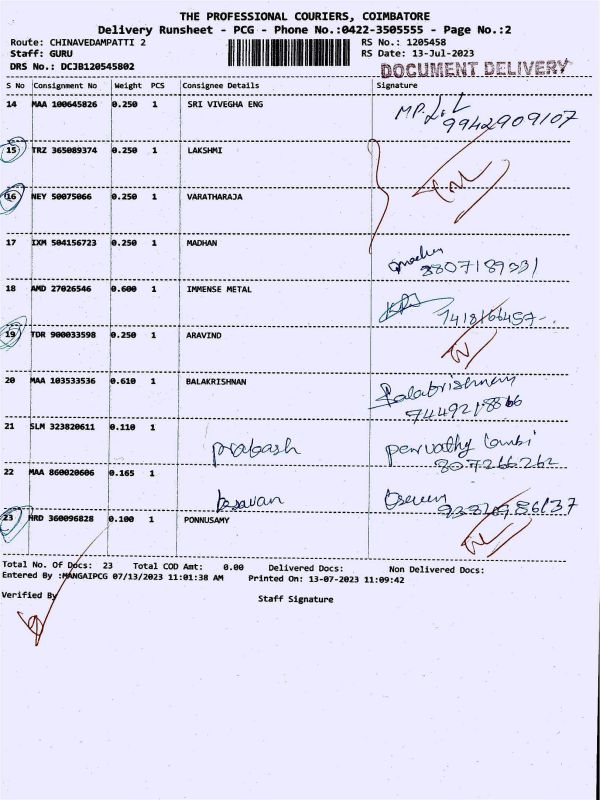 THE PROFESSIONAL COURIERS, COIMBATORE
Delivery Runsheet - PCG - Phone No.:0422-3505555 - Page No.:2
Route: CHINAVEDAMPATTI 2 RS No.: 1205458
Staff: GURU RS Date: 13-Jul-2023
DRS No.: DCJB120545802 DOCUMENT DELIVERY
S No Consignment No Weight PCS Consignee Details Signature
14 MAA 100645826 0.250 1 SRI VIVEGHA ENG
9942909107
15 TRZ 365089374 0.250 1 LAKSHMI
16 NEY 50075066 0.250 1 VARATHARAJA
17 IXM 504156723 0.250 1 MADHAN
18 AMD 27026546 0.600 1 IMMENSE METAL
19 TDR 900033598 0.250 1 ARAVIND
20 MAA 103533536 0.610 1 BALAKRISHNAN
Balakrishnan
21 SLM 323820611 0.110 1
prabash
807266262
22 MAA 860020606 0.165 1
23 HRD 360096828 0.100 1 PONNUSAMY
Total No. Of Docs: 23 Total COD Amt: 0.00 Delivered Docs: Non Delivered Docs:
Entered By :MANGAIPCG 07/13/2023 11:01:38 AM Printed On: 13-07-2023 11:09:42
Verified By Staff Signature